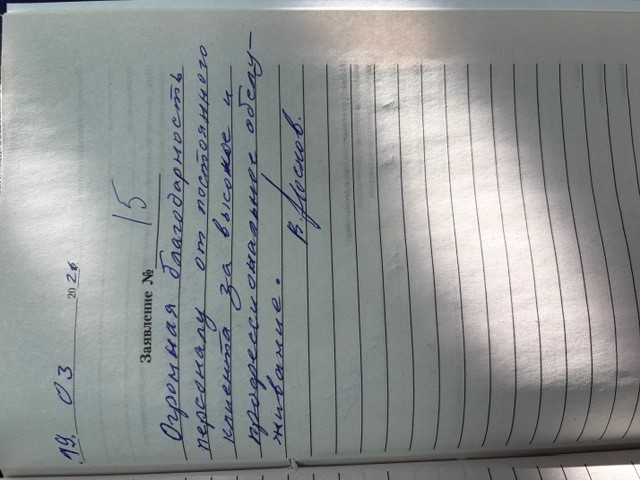 19. 03 2026
Заявление № 15
Огромная благодарность
персоналу от постоянного
клиента за высокое и
профессиональное обслу-
живание.
В.